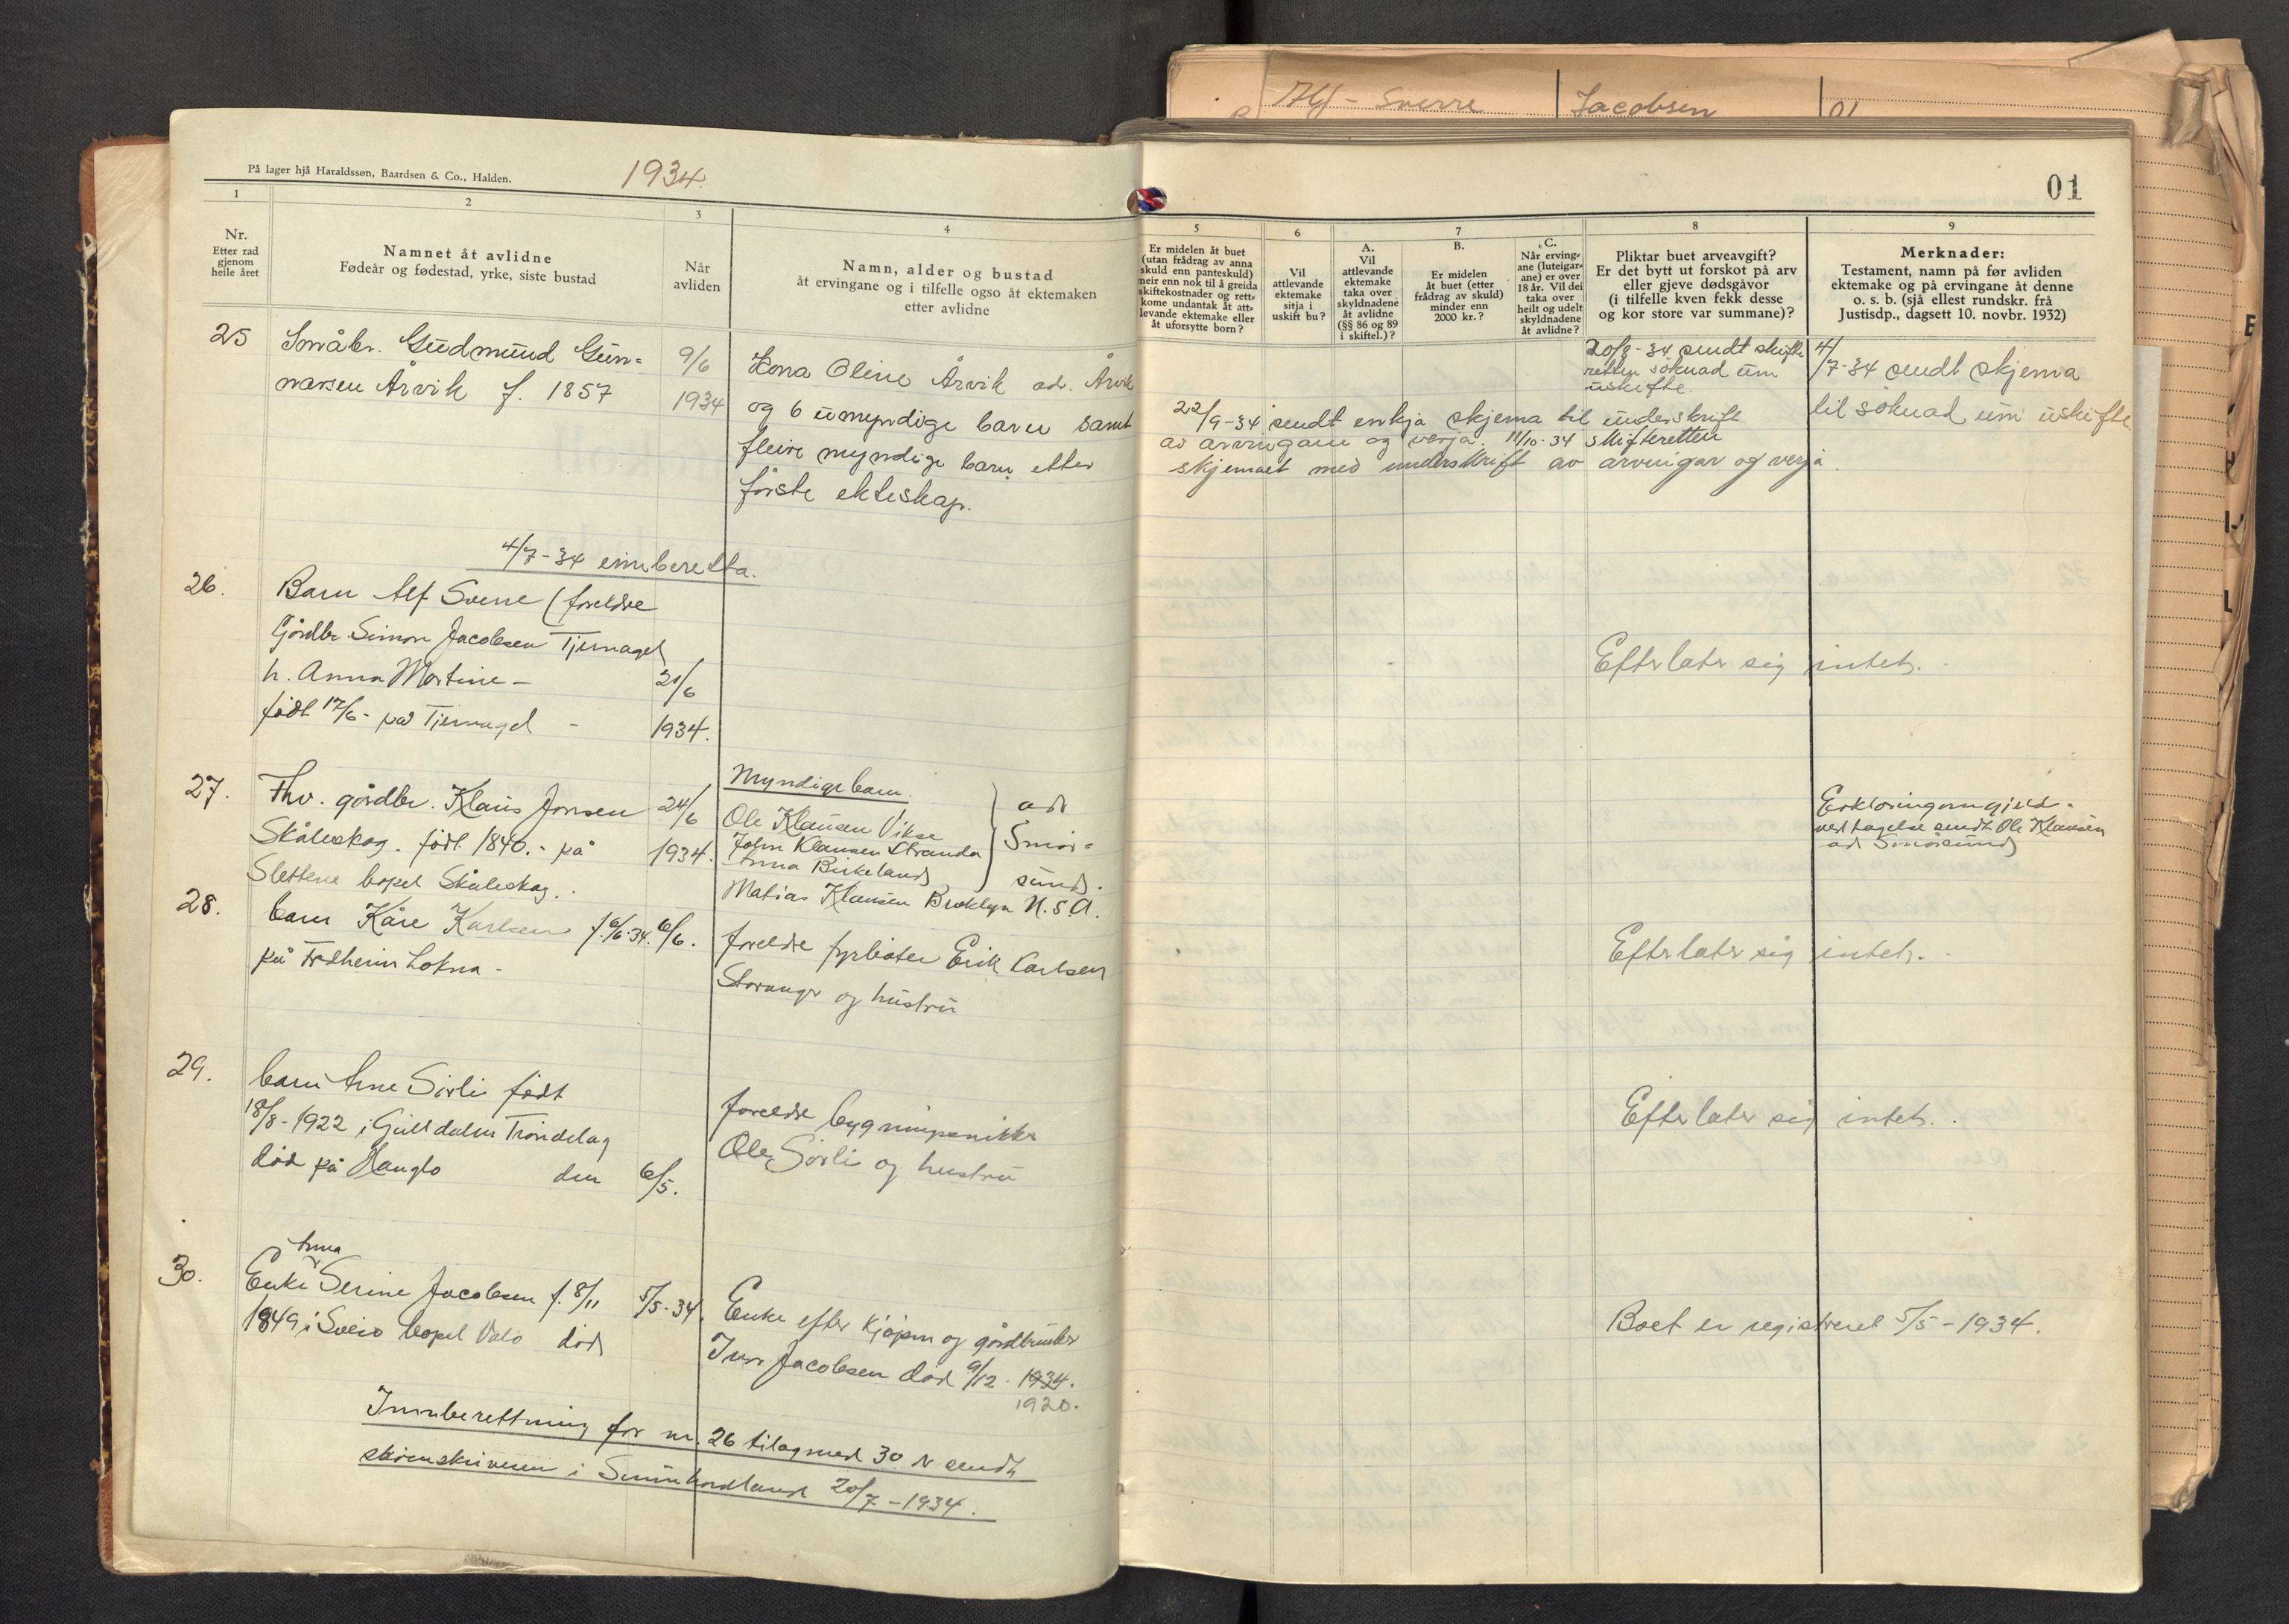 Alf - Sverre Jacobsen
På lager hjå Haraldssøn, Baardsen & Co., Halden.
1934.
01
1
2
3
4
5
6
7
8
9
Nr.
Etter rad
gjenom
heile året
Namnet åt avlidne
Fødeår og fødestad, yrke, siste bustad
Når
avliden
Namn, alder og bustad
åt ervingane og i tilfelle ogso åt ektemaken
etter avlidne
Er midelen åt buet
(utan frådrag av anna
skuld enn panteskuld)
meir enn nok til å greida
skiftekostnader og rett=
kome undantak åt att=
levande ektemake eller
åt uforsytte born?
Vil
attlevande
ektemake
sitja i
uskift bu?
A.
Vil
attlevande
ektemake
taka over
skyldnadene
åt avlidne
(§§ 86 og 89
i skiftel.)?
B.
Er midelen
åt buet (etter
frådrag av skuld)
minder enn
2000 kr.?
C.
Når erving=
ane (luteigar=
ane) er over
18 år. Vil dei
taka over
heilt og udelt
skyldnadene
åt avlidne?
Pliktar buet arveavgift?
Er det bytt ut forskot på arv
eller gjeve dødsgåvor
(i tilfelle kven fekk desse
og kor store var summane)?
Merknader:
Testament, namn på før avliden
ektemake og på ervingane åt denne
o. s. b. (sjå ellest rundskr. frå
Justisdp., dagsett 10. novbr. 1932)
25
Småbr. Gudmund Gun=
narsen Årvik f. 1857
9/6
1934
Kona Oline Årvik ad. Årvik
og 6 umyndige barn samt
fleire myndige barn etter
første ekteskap.
20/8-34 sendt skifte
retten søknad um
uskifte.
4/7-34 sendt skjema
til søknad um uskifte
22/9-34 sendt enkja skjema til underskrift
av arvingane og verja. 11/10-34 skifteretten
skjemaet med underskrift av arvingar og verja.
4/7-34 innberetta.
26.
Barn Alf Sverre (foreldre
Gårdbr. Simon Jacobsen Tjernagel
h. Anna Martine -
født 17/6- på Tjernagel -
21/6
1934.
Efterlater sig intet.
27.
Fhv. gårdbr. Klaus Jonsen
Skåleskog. født 1840.- på
Slettene bopel Skåleskog.
24/6
1934.
Myndige barn.
Ole Klausen Vikse
John Klausen Stranda
Anna Birkeland
Matias Klausen Broklyn U.S.A.
adr
Smør=
sund.
Erklæring om gjeld-
vedtagelse sendt Ole Klausen
ad Smørsund
28.
barn Kåre Karlsen f. 6/6-34. 6/6.
på Fredheim Lokna -
foreldre fyrbøter Erik Karlsen
Stavanger og hustru
Efterlater sig intet.
29.
barn Arne Sørli født
18/8-1922 i Guldalen Trøndelag
død på Hauglo den 6/5.
foreldre bygningsnikker
Ole Sørli og hustru
Efterlater sig intet.
30.
Anna
Enke Serine Jacobsen f. 8/11
1849 i Sveio bopel Valo død
5/5-34.
Enke efter kjøpm og gårdbruker
Iver Jacobsen død 9/12. 1934.
1920.
Boet er registreret 5/5-1934.
Innberettning for nr. 26 tilogmed 30 sendt
skrivenskriveren i Sunnhordland 20/7-1934.